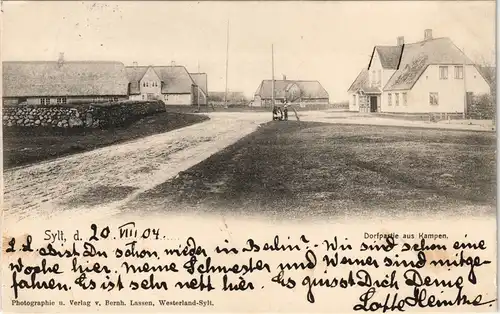 Sylt, d. 20 VIII 04.
Dorfpartie aus Kampen.
L L. bist Du schon wieder in Berlin? Wir sind schon eine
Woche hier. Meine Schwester und Werner sind mitge-
fahren. Es ist sehr nett hier. Es grüsst Dich Deine
Lotte Heincke.
Photographie u. Verlag v. Bernh. Lassen, Westerland-Sylt.